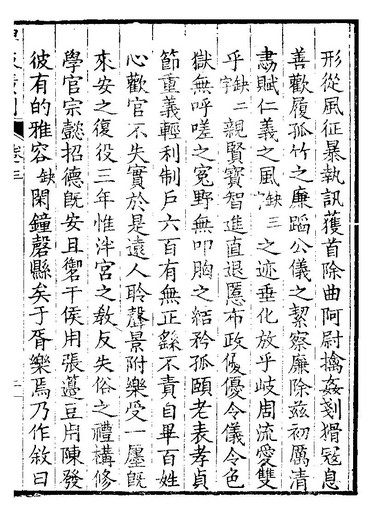 形從風征暴執訊獲首除曲阿尉擒姦剗猾寇息
善歡履孤竹之廉蹈公儀之絜察廉除茲初厲清
肅賦仁義之風缺三之迹垂化放乎岐周流愛雙
乎缺二字親賢寶智進直退慝布政優優令儀令色
獄無呼嗟之冤野無叩胸之結矜孤頤老表孝貞
節重義輕利制戶六百有無正繇不責自畢百姓
心歡官不失實於是遠人聆聲景附樂受一廛旣
來安之復役三年惟泮宮之敎反失俗之禮構修
學官宗懿招德旣安且寍干侯用張籩豆用陳發
彼有的雅容缺閑鐘磬縣矣于胥樂焉乃作敘曰
卷三